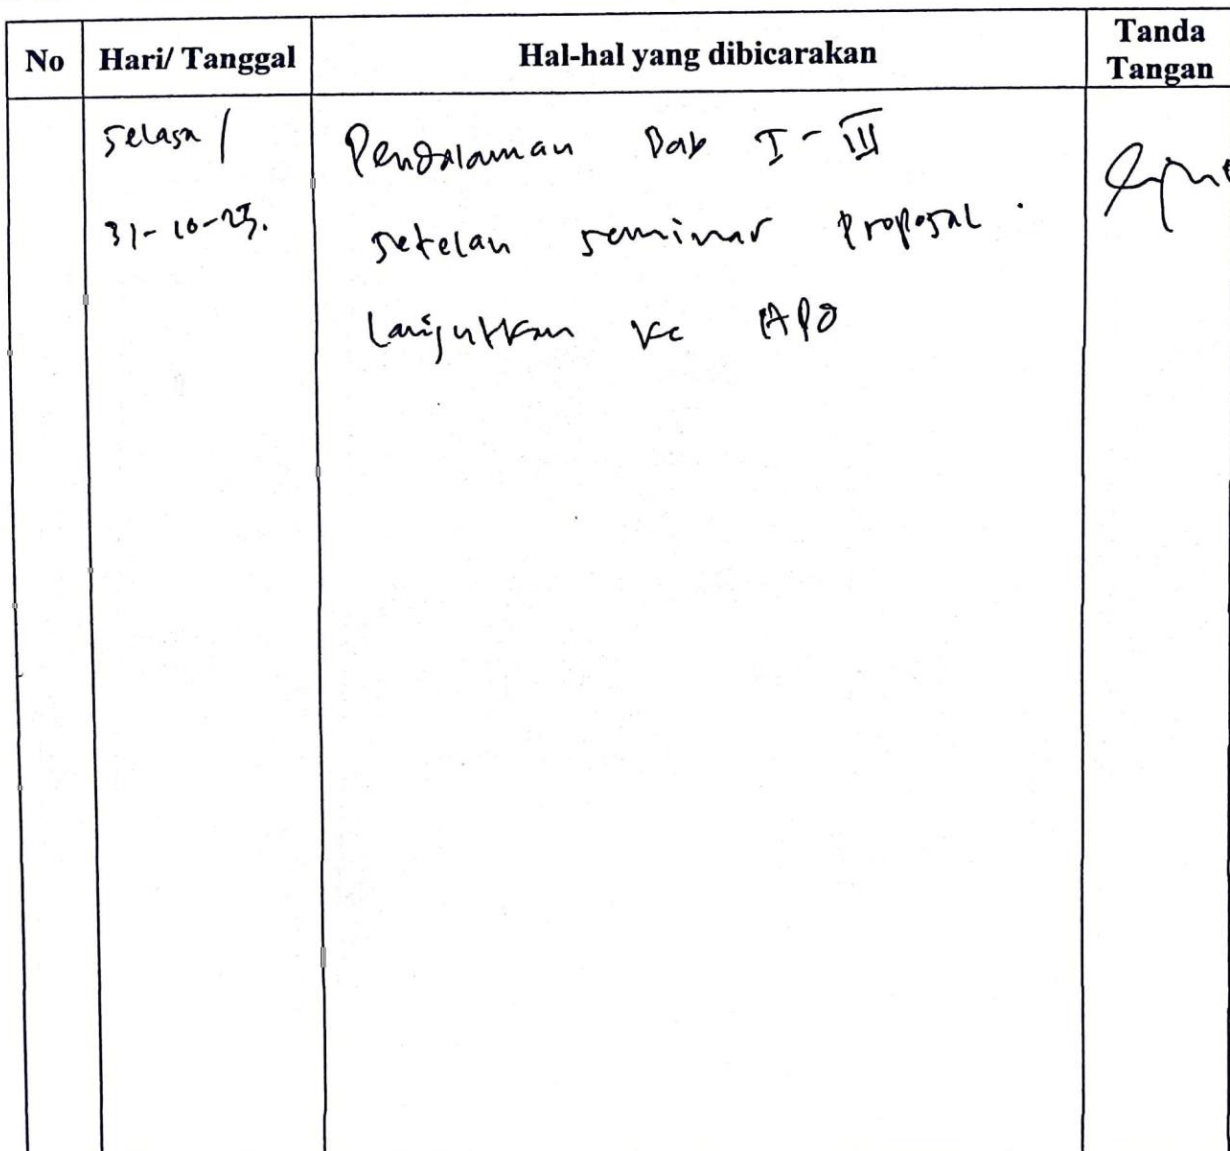 No Hari/ Tanggal Hal-hal yang dibicarakan Tanda Tangan
Selasa / Pendalaman Bab I - III
31-10-23. setelah seminar proposal.
Lanjutkan ke APD